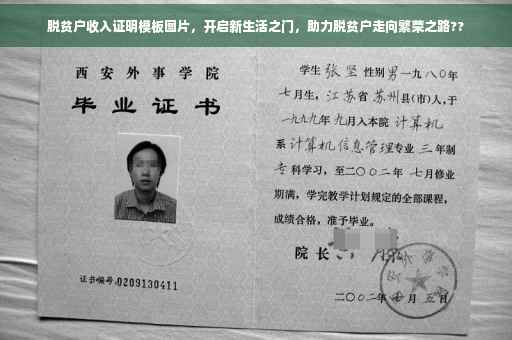 脱贫户收入证明模板图片，开启新生活之门，助力脱贫户走向繁荣之路??
西安外事学院
毕业证书
证书编号:0209130411
学生 张坚 性别 男 一九八〇年
七月生，江苏省 苏州县(市)人，于
一九九九年 九月入本院 计算机
系 计算机信息管理专业 三年制
专科学习，至二〇〇二年 七月修业
期满，学完教学计划规定的全部课程，
成绩合格，准予毕业。
院长
二〇〇二年 七月 五日